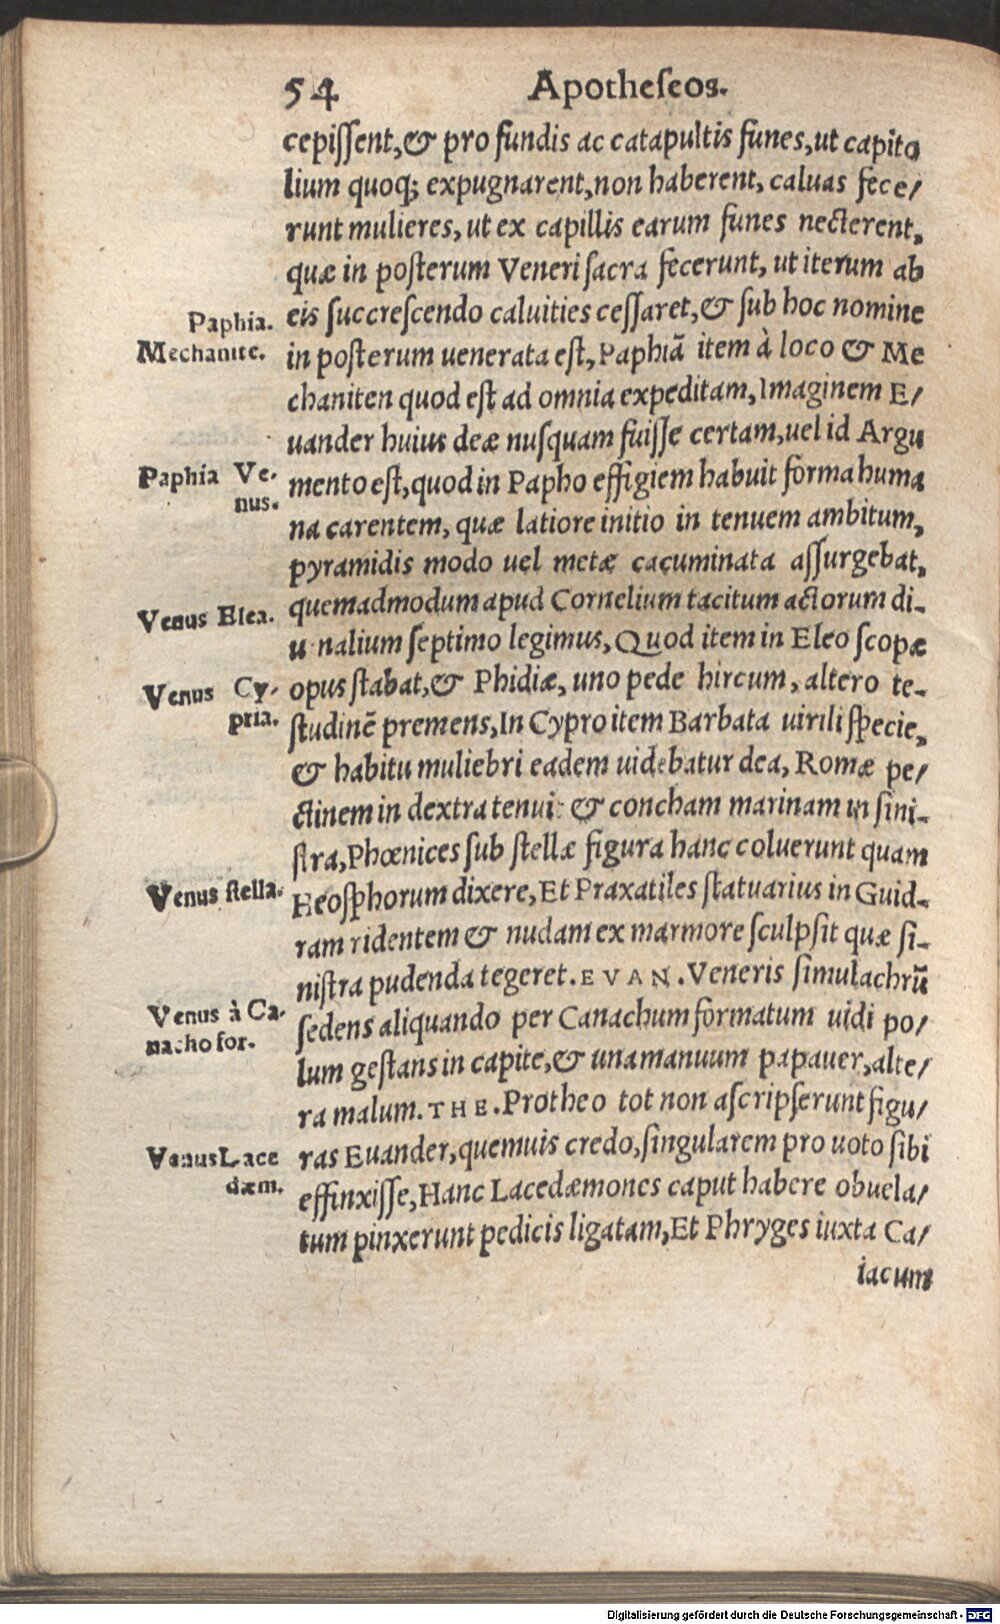 54 Apotheſeos.
cepiſſent,& pro fundis ac catapultis funes,ut capito
lium quoq; expugnarent,non haberent, caluas fece/
runt mulieres, ut ex capillis earum funes necterent,
quæ in poſterum Veneri ſacra fecerunt, ut iterum ab
Paphia. eis ſuccreſcendo caluities ceſſaret,& ſub hoc nomine
Mechanite. in poſterum uenerata eſt, Paphiā item à loco & Me
chaniten quod eſt ad omnia expeditam, Imaginem E/
uander huius deæ nuſquam fuiſſe certam,uel id Argu
Paphia Ve- mento eſt,quod in Papho effigiem habuit forma huma
nus. na carentem, quæ latiore initio in tenuem ambitum,
pyramidis modo uel metæ cacuminata aſſurgebat,
Venus Elea. quemadmodum apud Cornelium tacitum actorum di-
u nalium ſeptimo legimus, Quod item in Eleo ſcopæ
Venus Cy- opus ſtabat,& Phidiæ, uno pede hircum, altero te-
pria. ſtudinē premens, In Cypro item Barbata uirili ſpecie,
& habitu muliebri eadem uidebatur dea, Romæ pe/
ctinem in dextra tenui: & concham marinam in ſini-
ſtra, Phœnices ſub ſtellæ figura hanc coluerunt quam
Venus ſtella. Heoſphorum dixere, Et Praxatiles ſtatuarius in Guid-
ram ridentem & nudam ex marmore ſculpſit quæ ſi-
niſtra pudenda tegeret. EVAN. Veneris ſimulachrū
Venus à Ca- ſedens aliquando per Canachum formatum uidi po/
nacho for. lum geſtans in capite,& una manuum papauer, alte/
ra malum. THE. Protheo tot non aſcripſerunt figu/
Venus Lace ras Euander, quemuis credo, ſingularem pro uoto ſibi
dæm. effinxiſſe, Hanc Lacedæmones caput habere obuela/
tum pinxerunt pedicis ligatam, Et Phryges iuxta Ca/
iacum
Digitalisierung gefördert durch die Deutsche Forschungsgemeinschaft - DFG